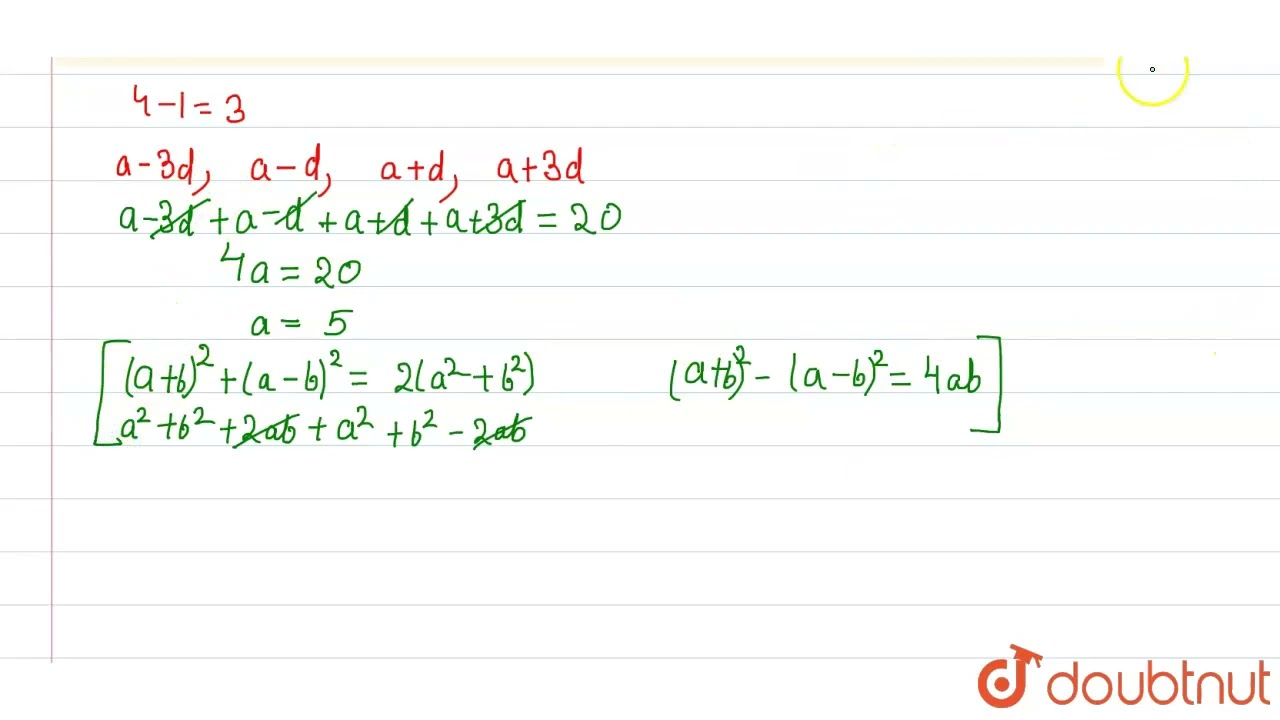 4-1=3
a-3d, a-d, a+d, a+3d
a-3d+a-d+a+d+a+3d=20
4a=20
a=5
[(a+b)²+(a-b)²= 2(a²+b²) (a+b)²-(a-b)²=4ab]
a²+b²+2ab+a²+b²-2ab
doubtnut